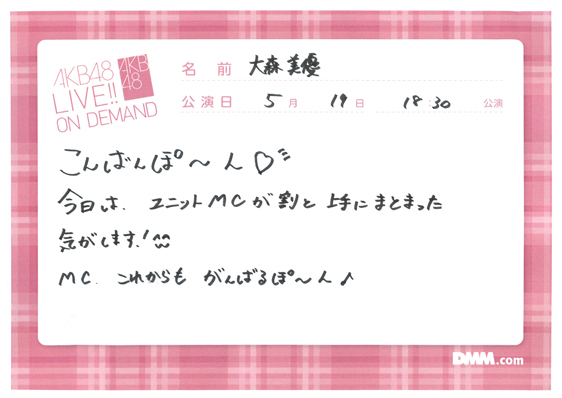 AKB48
LIVE!!
ON DEMAND
AKB
48
名前 大森美優
公演日 5月 19日 18:30 公演
こんばんぽ〜ん♡
今日は、ユニットMCが割と上手にまとまった
気がします!^^
MC、これからもがんばるぽ〜ん♪
DMM.com